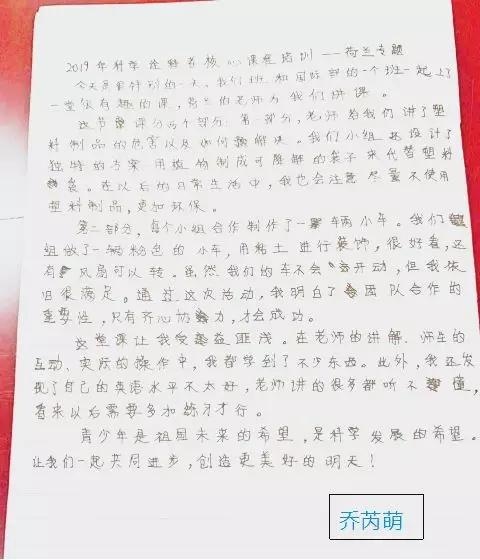 2019年科学诠释者核心课程培训——荷兰专题
今天是很特别的一天，我们班和国际部的一个班一起上了
一堂很有趣的课，荷兰的老师为我们讲课。
这节课分两个部分：第一部分，老师给我们讲了塑
料制品的危害以及如何解决。我们小组还设计了
独特的方案 用植物制成可降解的袋子来代替塑料
袋。在以后的日常生活中，我也会注意尽量不使用
塑料制品，更加环保。
第二部分，每个小组合作制作了一辆小车。我们
组做了一辆粉色的小车，用粘土进行装饰，很好看，还
有风扇可以转。虽然我们的车不会开动，但我依
旧很满足。通过这次活动，我明白了团队合作的
重要性，只有齐心协力，才会成功。
这堂课让我受益匪浅。在老师的讲解、师生的
互动、实际的操作中，我都学到了不少东西。此外，我还发
现了自己的英语水平不太好，老师讲的很多都听不懂，
看来以后需要多加练习才行。
青少年是祖国未来的希望，是科学发展的希望。
让我们一起共同进步，创造更美好的明天！
乔芮萌